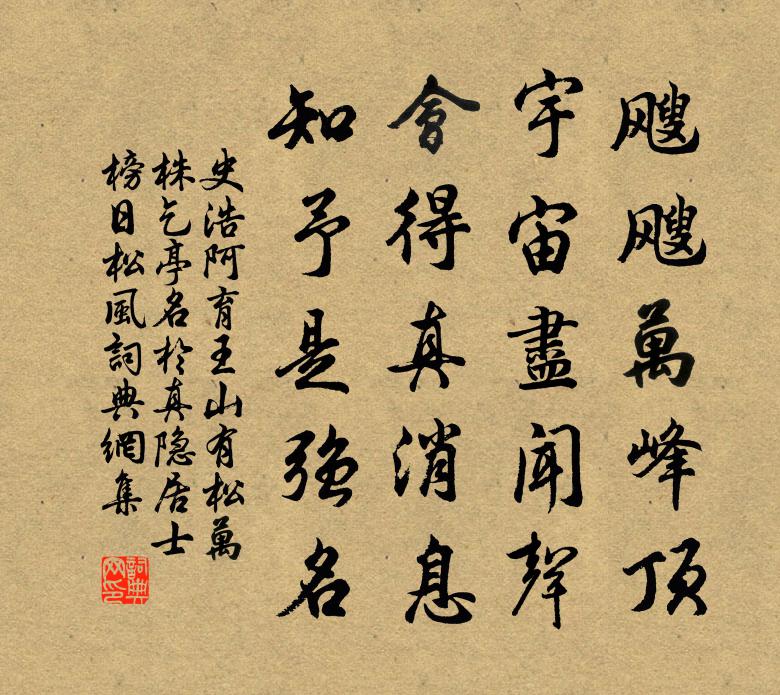 颼颼萬峰頂
宇宙盡聞聲
會得真消息
知予是強名
史浩阿育王山有松萬
株乞亭名於真隐居士
榜日松風詞典網集
詞典网印